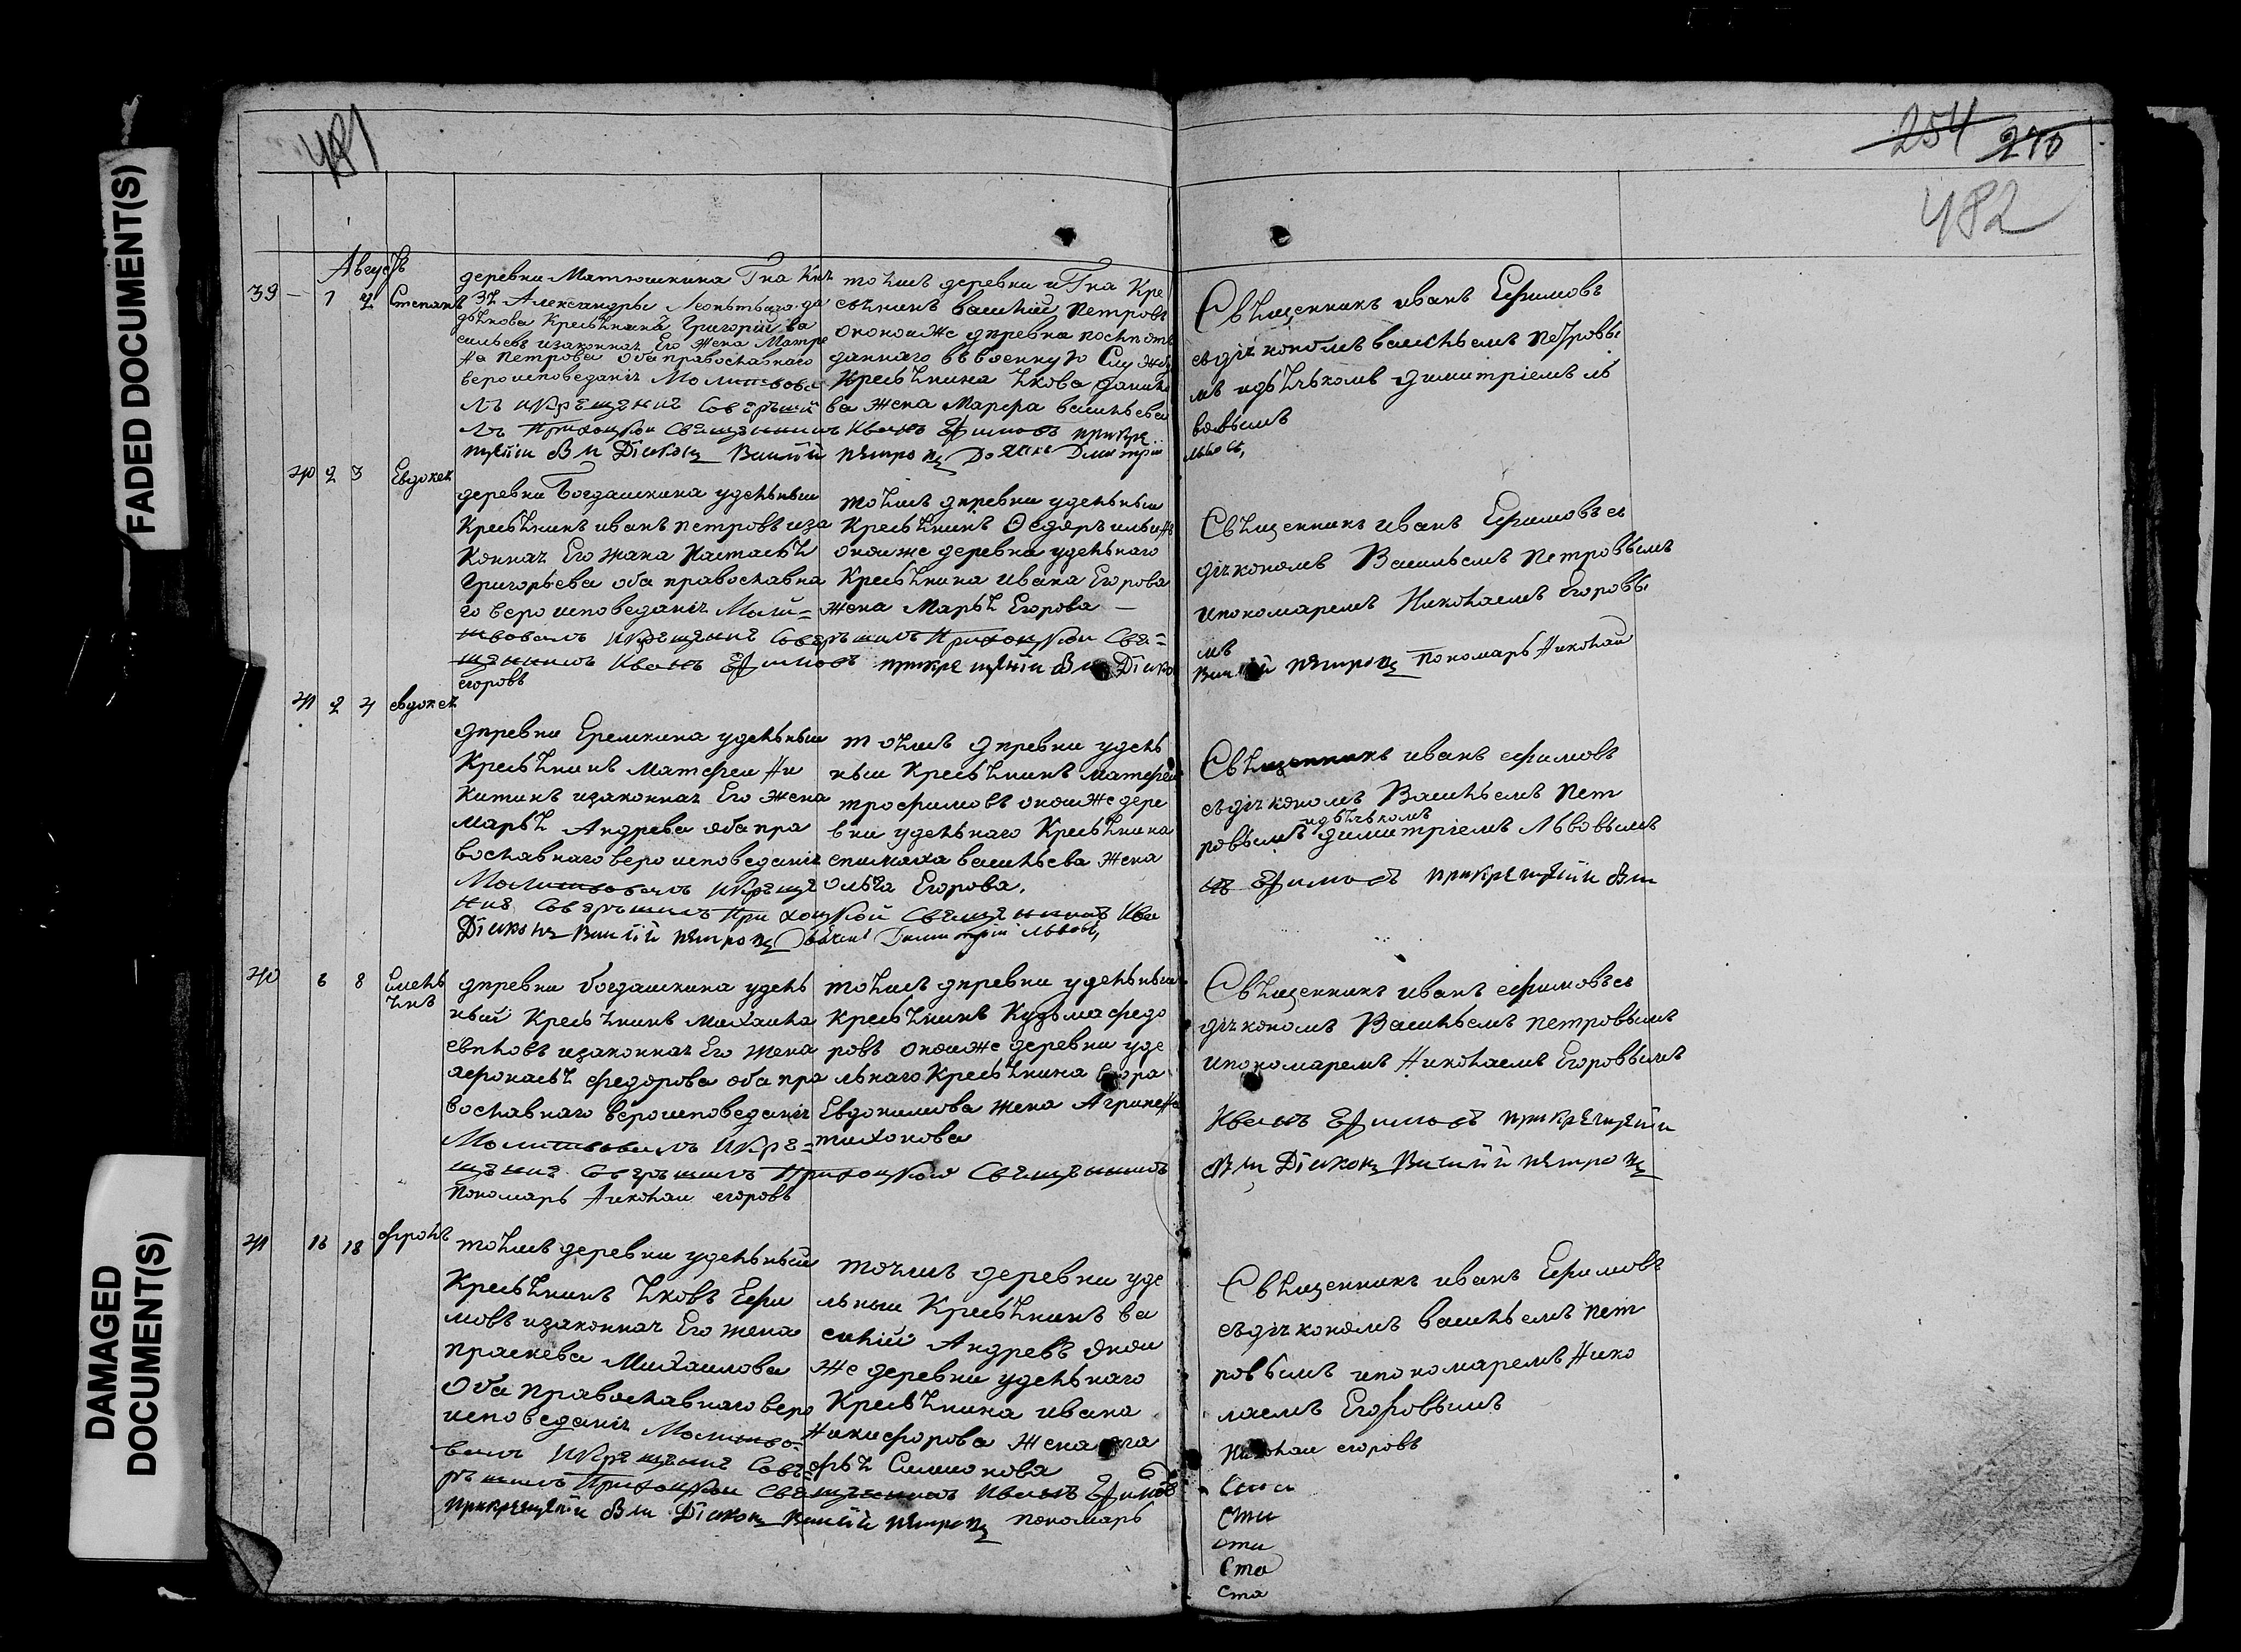 FADED DOCUMENT(S)
DAMAGED DOCUMENT(S)
481
254 270
482
Августъ
39 – 1 2 Степанъ
деревни Матюшкина Гна Кнз
зя Александры
дѣкова Кресьѣнина Григорій ва
сильевъ изаконная Его Жена Матре
на Петрова оба православнаго
вероисповеданія Молитвова
лъ и Крещение Соверши
лъ Приходской Священникъ Иванъ Ефимовъ при кре
щеніи был Дїаконъ Василій Петровъ Дьячекъ Дмитріи
тоѣжъ деревни и Гна Кре
сьѣнинъ василій Петровъ
оноиже дпревна
даннаго въ военную Службу
Кресьѣнина Ѣкова данило
ва жена Марфа васильева
Свѣщенникъ иванъ Ефимовъ
съдіякономъ васильемъ петровы
мъ идьѣчькомъ димитріемъ ль
вовымъ
львовъ,
40 2 3 Евдокея
деревни Богдашкина удельныи
Кресьѣнинъ иванъ петровъ иза
конная Его жана Настасьѣ
Григорьева оба православна
го вероисповеданія Моли=
твовалъ и Крещение Совершилъ Приходской Свя=
щенникъ Иванъ Ефимовъ при крещеніи был Дїако
егоровъ
тоѣжъ дпревни удельныи
Кресьѣнинъ Ѳедоръ ильинъ
оноиже деревна удельнаго
Кресьѣнина ивана Егорова
жена Марьѣ Егорова –
Свѣщенникъ иванъ Ефимовъ съ
діякономъ Васильемъ Петровымъ
ипономаремъ Николаемъ Егоровы
мъ
Василій Петровъ Пономарь Николаи
41 2 4 евдокея
дпревни Еремкина удельныи
Кресьѣнинъ матфеи Ни
китинъ изаконная Его жена
марьѣ Андрева оба пра
вославнаго вероисповеданія
Молитвовалъ и Креще
ние Совершилъ Приходской Священникъ Ива
Дїаконъ Василій Петровъ Дьячекъ Димитріи львовъ,
тоѣжъ дпревни удель
ныи Кресьѣнинъ матфеи
трофимовъ оноиже дере
вни удельнаго Кресьѣнина
епимаха васильева жена
ольга Егорова.
Свѣщенникъ иванъ ефимовъ
съдіякономъ Васильемъ Пет
идьѣчькомъ
ровымъ димитріемъ Львовымъ
нъ Ефимовъ при крещеніи был
40 6 8 Емель
ѣнъ
дпревни богдашкина удель
ный Кресьѣнинъ михаила
евпловъ изаконная Его жена
афонасьѣ федорова оба пра
вославнаго вероисповеданія
Молитвовалъ и Кре=
щение Совершилъ Приходской Священникъ
Пономарь Николаи егоровъ
тоѣжъ дпревни удельныи
Кресьѣнинъ Кузьма федо
ровъ оноиже деревни уде
льнаго Кресьѣнина Егора
Евдокимова жена Агрипена
тихонова
Свѣщенникъ иванъ ефимовъ съ
діякономъ Васильемъ петровымъ
ипономаремъ Николаемъ Егоровымъ
Иванъ Ефимовъ при крещеніи
был Дїаконъ Василій Петровъ
41 16 18 фролъ
тоѣжъ деревни удельный
Кресьѣнинъ Ѣковъ Ефи
мовъ изаконная Его жена
праскева Михаилова
Оба Православнаго веро
исповеданія Молитво=
валъ и Крещение Сове=
ршилъ Приходской Священникъ Иванъ Ефимовъ
при крещеніи был Дїаконъ Василій Петровъ пономарь
точижъ деревни уде
льныи Кресьѣнинъ ва
силій Андревъ онои
же деревни удельнаго
Кресьѣнина ивана
Никифорова Жена ага
фьѣ Симионова
Свѣщенникъ иванъ Ефимовъ
съдіякономъ васильемъ пет
ровымъ ипономаремъ Нико
лаемъ Егоровымъ
Николаи егоровъ
Сти
сти
Ста
ста